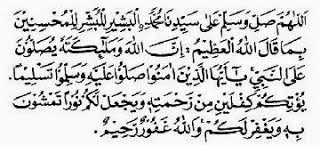 اَللّٰهُمَّ صَلِّ وَسَلِّمْ عَلَى سَيِّدِنَا مُحَمَّدٍ۟الْبَشِيْرِ لِلْمُبَشِّرِ لِلْمُحْسِنِيْنَ
بِمَا قَالَ اللهُ الْعَظِيْمُ ؛ اِنَّ اللهَ وَمَلٰئِكَتَهُ يُصَلُّوْنَ
عَلَى النَّبِيِّ يٰاَيُّهَا الَّذِيْنَ اٰمَنُوْا صَلُّوْا عَلَيْهِ وَسَلِّمُوْا تَسْلِيْمًا.
يُؤْتِكُمْ كِفْلَيْنِ مِنْ رَحْمَتِهِ وَيَجْعَلْ لَكُمْ نُوْرًا تَمْشُوْنَ
بِهِ وَيَغْفِرْلَكُمْ وَاللهُ غَفُوْرٌ رَحِيْمٌ .